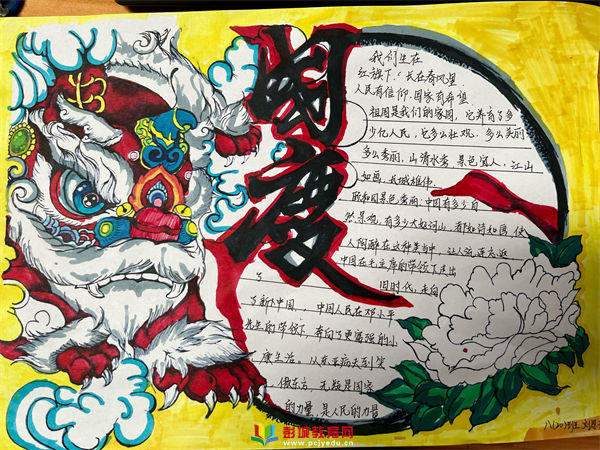 国慶
我们生在
红旗下，长在春风里，
人民有信仰,国家有希望
祖国是我们的家园，它养育了多
少亿人民，它多么壮观，多么美丽
多么秀丽，山清水秀，景色宜人，江山
如画，长城雄伟
祖国景色秀丽:中国有多少自
然景观，有多少大好河山，看如诗如图，使
人陶醉在这种美当中，让人流连忘返
中国在毛主席的带领下走出
了 旧时代，走向
了新中国，中国人民在邓小平
先生的带领下 奔向了更富强的小
康生活。从东亚病夫到笑
傲东方，无疑是国家
的力量,是人民的力量
八(20)班 刘
彭城教育网
www.pcjyedu.cn